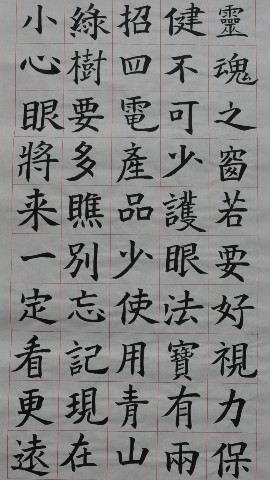 靈魂之窗若要好視力保
健不可少護眼法寶有兩
招四電產品少使用青山
綠樹要多瞧別忘記現在
小心眼將来一定看更遠